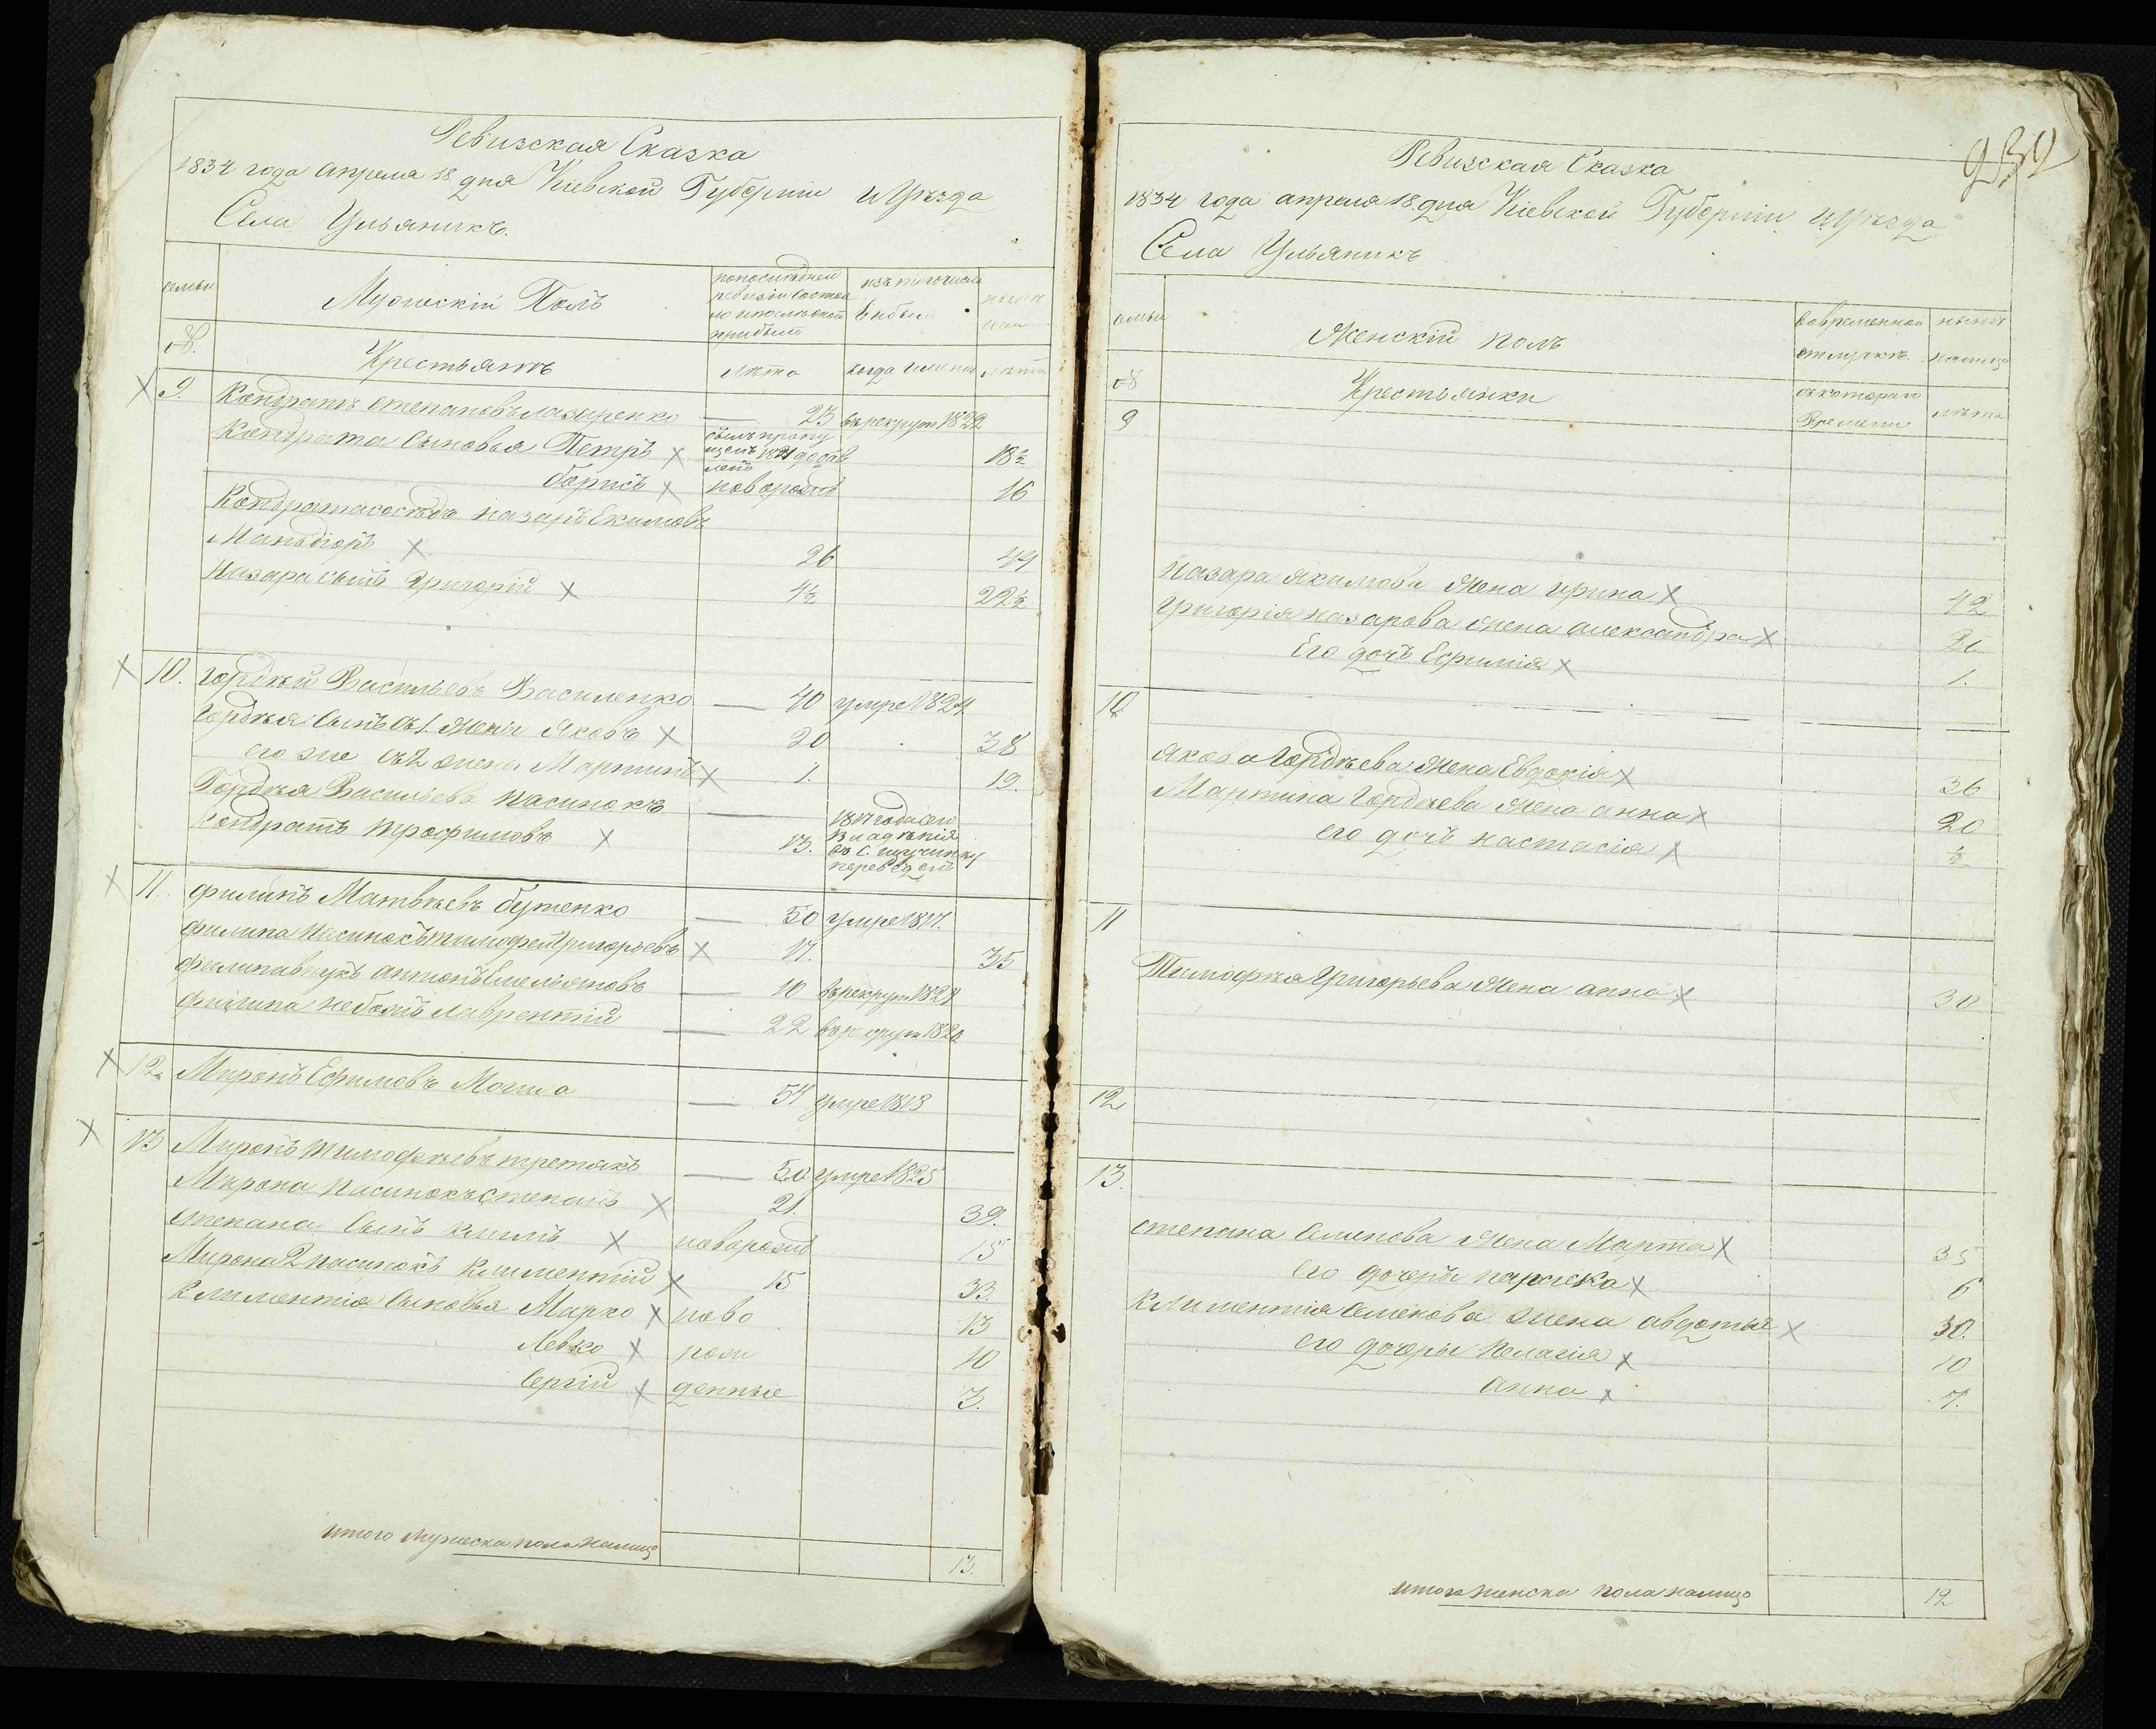 Ревизская Сказка
1834 года апреля 18 дня Кіевской Губерніи и Уѣзда
Села Ульяникъ
семьи
Мужескій Полъ
по последней
ревизіи состоя
ло и после оной
прибыло
изъ того числа
выбыло
нынѣ
№.
Крестьянъ
лѣта
когда имянно
лѣта
9. Кондратъ Степановъ Лазаренко — 23 въ рекрут 1822
Кондрата Сыновья Петръ былъ пропу
щенъ 1821 добав
ленъ 18½
борисъ новорожд 16
Кондрата сосѣдъ назаръ Екимовъ
26 49
Назара Сынъ Григорій 4½ 22½
10. Гордѣй Васильевъ Василенко — 40 умре 1824
Гордѣя Сынъ съ 1. жени Яковъ 20 38
его же съ 2 жены Мартинъ 1. 19.
Гордѣя Васильева пасинокъ
Кондратъ трофимовъ — 13. 1817 года сего
владѣнія
въ С.
переведенъ
11. филипъ Матвѣевъ бутенко — 50 умре 1817.
филипа пасинокъ тимофей Григорьевъ 17. 35
филипа внукъ антонъ Емельяновъ — 10 въ рекрут 1828
филипа небожъ лаврентій — 22 въ рекрут 1820
12. Миронъ Ефимовъ Могила — 54 умре 1818
13 Миронъ тимофѣевъ третякъ — 50 умре 1825
Мирона пасинокъ степанъ 21. 39.
степана Сынъ климъ новорожд 15
Мирона 2 пасинокъ Климентій 15 33.
Климентія Сыновья Марко ново 13
Левко рож 10
Сергій денные 3.
итого мужеска пола налицо 13.
939
Ревизская Сказка
1834 года апреля 18. дня Кіевской Губерніи и Уѣзда
Села Ульяникъ
семьи
Женскій полъ
во временной
отлучкѣ
нынѣ
налицо
№
Крестьянки
съ котораго
Времени
лѣта
9
Назара Якимова жена ирина 42
Григорія назарова жена александра 21
Его дочь Ефимія 1.
10
Якова Гордѣева жена Евдокія 36
Мартина Гордѣева жена анна 20
его дочь настасія ½
11
Тимофѣя Григорьева жена анна 30
12
13.
степана Семенова жена Марта 35
его дочерь параска 6
Климентія Семенова жена авдотья 30.
его дочеры пелагія 10
анна 7.
итого женска пола налицо 12